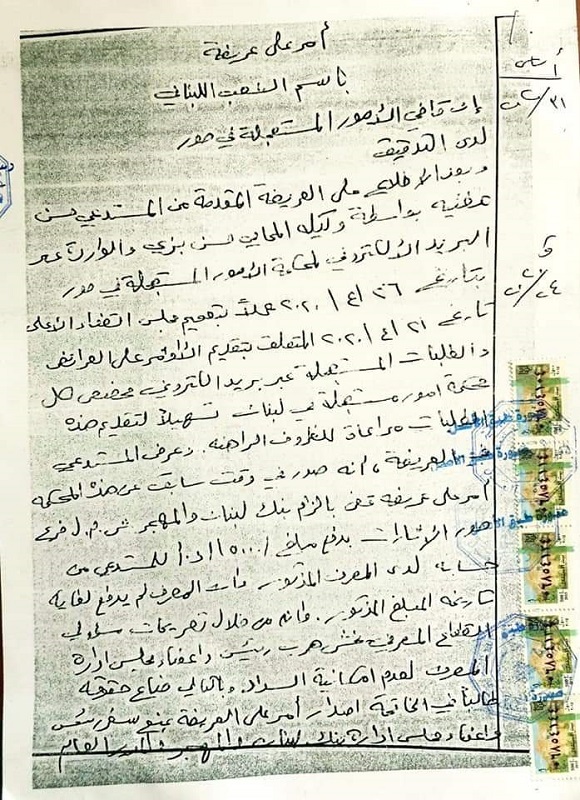 أمر على عريضة
باسم الشعب اللبناني
أساس
٣١/٢٠٢٠
إن قاضي الأمور المستعجلة في صور
لدى التدقيق
وبعد الاطلاع على العريضة المقدمة من المستدعي حسن
مغنيه بواسطة وكيله المحامي حسن بزي والواردة عبر
ق
٢٤/٢٠٢٠
البريد الألكتروني لمحكمة الأمور المستعجلة في صور
بتاريخ ٢٦/٤/٢٠٢٠ عملاً بتعميم مجلس القضاء الأعلى
تاريخ ٢١/٤/٢٠٢٠ المتعلق بتقديم الأوامر على العرائض
والطلبات المستعجلة عبر بريد الكتروني مخصص لكل
محكمة امور مستعجلة في لبنان تسهيلاً لتقديم هذه
الطلبات مراعاة للظروف الراهنة. وعرض المستدعي
في العريضة، انه صدر في وقت سابق عن هذه المحكمة
أمر على عريضة قضى بالزام بنك لبنان والمهجر ش.م.ل فرع
صور الآثارات بدفع مبلغ /١٥٠٠٠/ د.أ للمستدعي من
حسابه لدى المصرف المذكور وان المصرف لم يدفع لغاية
تاريخه المبلغ المذكور. وانه من خلال تصريحات مسؤولي
القطاع المصرفي يخشى هرب رئيس واعضاء مجلس ادارة
المصرف لعدم امكانية السداد وبالتالي ضياع حقوقه
طالباً في الخاتمة اصدار أمر على العريضة بمنع سفر رئيس
واعضاء مجلس ادارة بنك لبنان والمهجر والمدير العام
صورة طبق الأصل